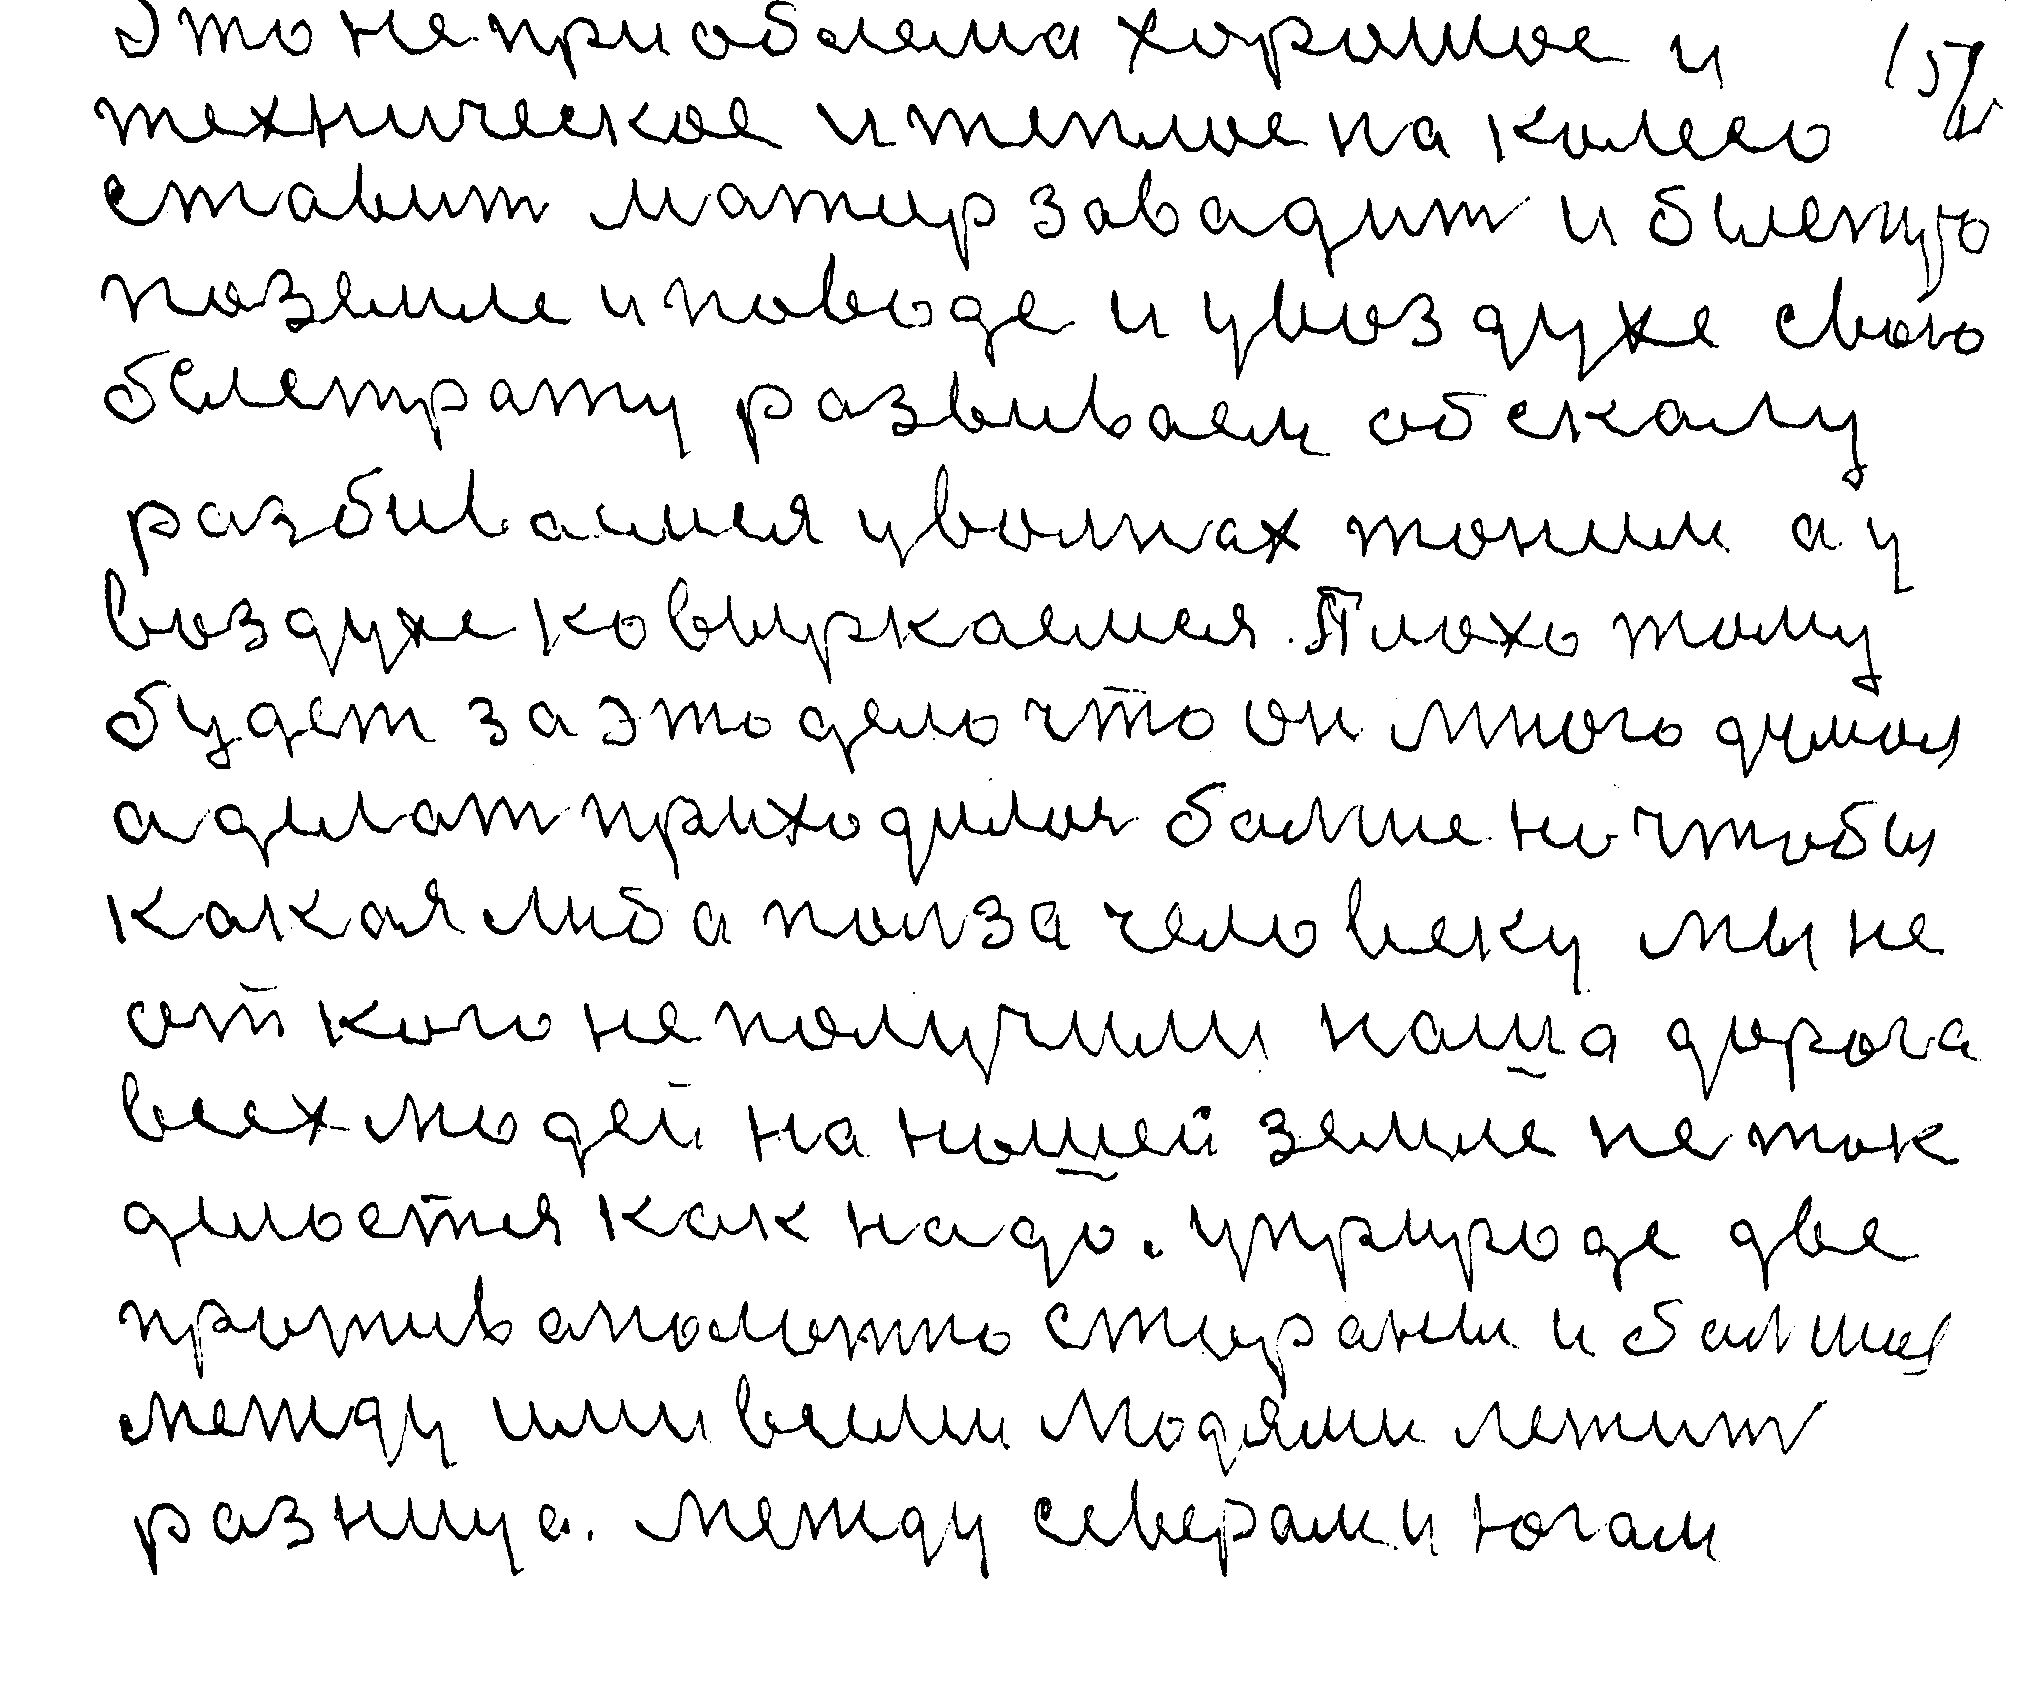 Это не приоблема хорошое и 15
техническое и теплое на колесо
ставит матир завадит и билетую
по земле и поводе и увоздухе свою
белетрату развиваем об скалу
разбиваемся уволнах тоним а у
воздухе ковыркаемся. Плохо тому
будет за это дело что он много думал
а делат приходилоя балше но чтобы
какая либа полза человеку мы не
от кого не получили наша дорога
всех людей на нашей земле не так
делается как надо. уприроде две
противаположно стораны и балшая
между ими всеми людями лежит
разница. между северам и югам